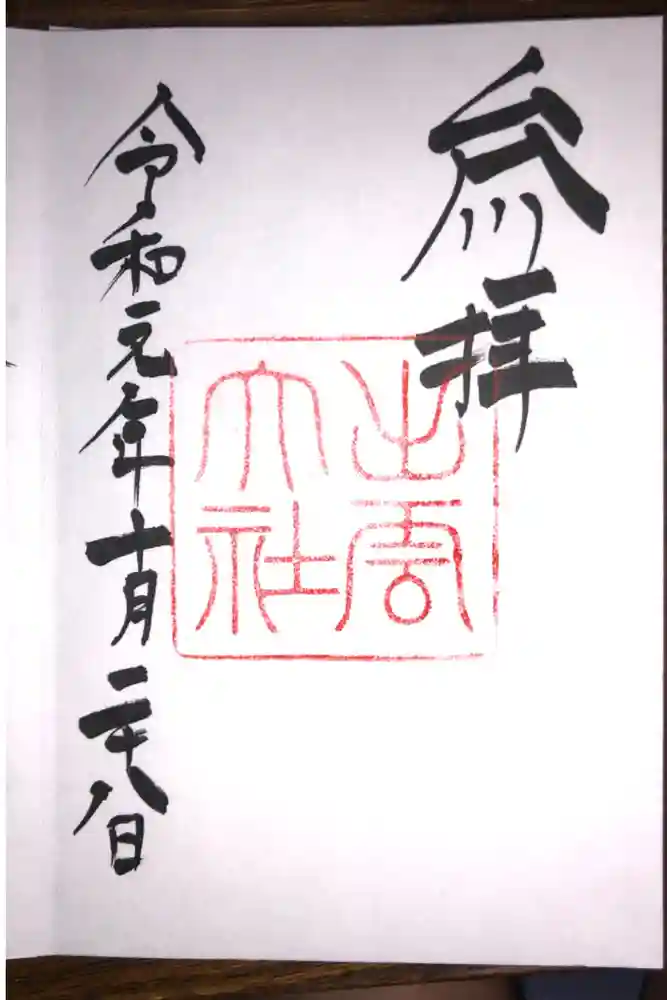 参拝
出雲
大社
令和元年十月二十八日